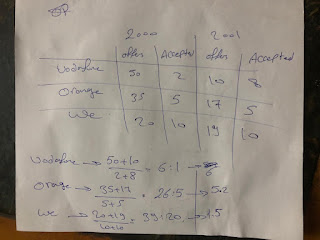 2000 2001
offer Accepted offer Accepted
Vodafone 50 2 10 8
Orange 35 5 17 5
We 20 10 19 10
Vodafone → 50+10 / 2+8 = 6:1 → 6
Orange → 35+17 / 5+5 = 26:5 → 5.2
We → 20+19 / 10+10 = 39:20 → 1.5